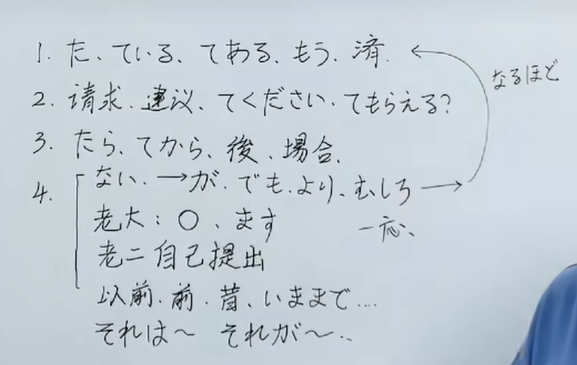 1. た、ている、てある、もう、済
なるほど
2. 请求、建议、てください、てもらえる?
3. たら、てから、後、場合、
4. ない、→が、でも、より、むしろ→
老大:〇、ます
一応、
老二 自己提出
以前、前、昔、いままで....
それは～ それが～..